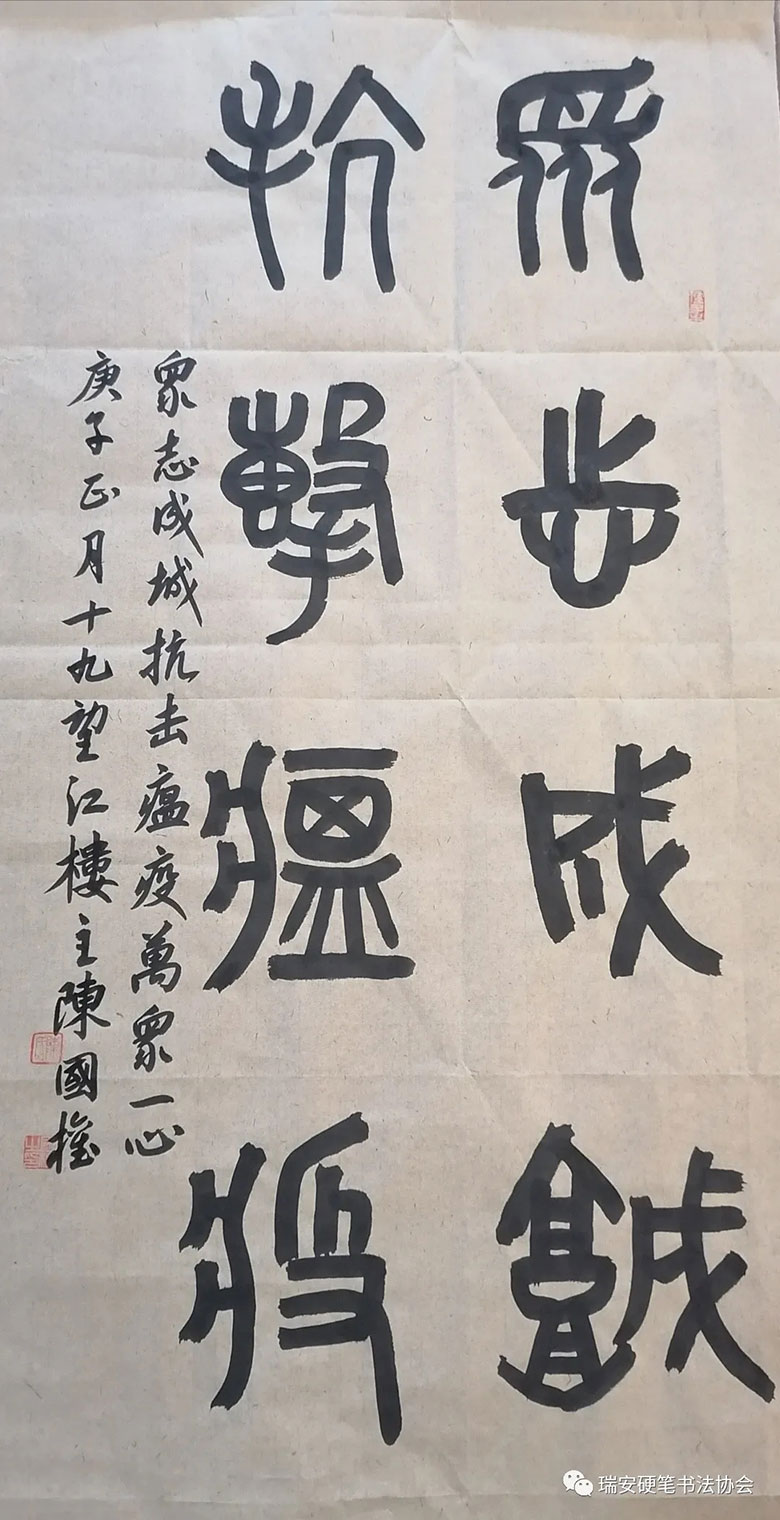 眾志成城
抗擊瘟疫
眾志成城抗击瘟疫萬眾一心
庚子正月十九望江樓主陳國權
瑞安硬笔书法协会